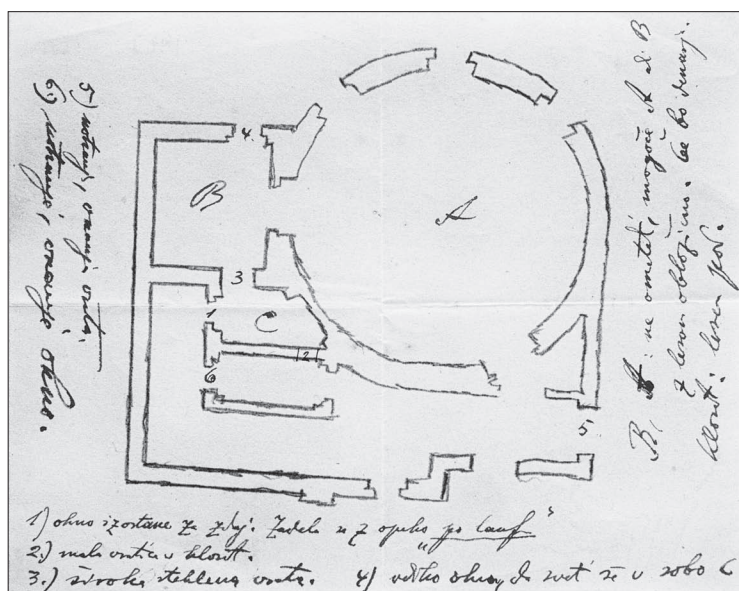 5) notranja, zunanja vrata.
6.) notranje, zunanje okno.
B, A: ne ometati, mogoče A ali B
z lesom obložimo. Če bo denarja.
lesen pod.
4.
B
A
3
1
C
2
6
5
1) okno izostane za zdaj. Zadela se z opeko "po lauf"
2.) mala vratica v kloset.
3.) široka steklena vrata. 4) veliko okno, da sveti še v sobo C